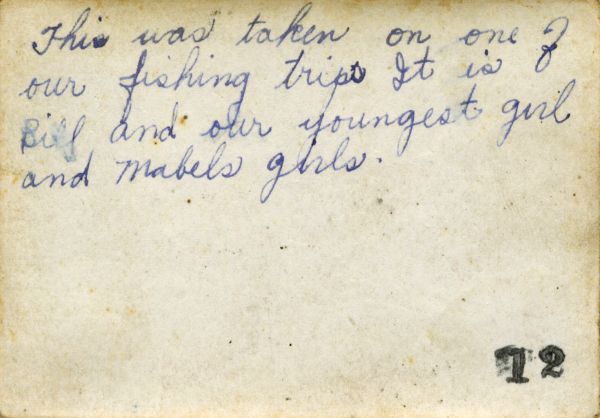 This was taken on one of
our fishing trips It is
Bill and our youngest girl
and Mabels girls.
72